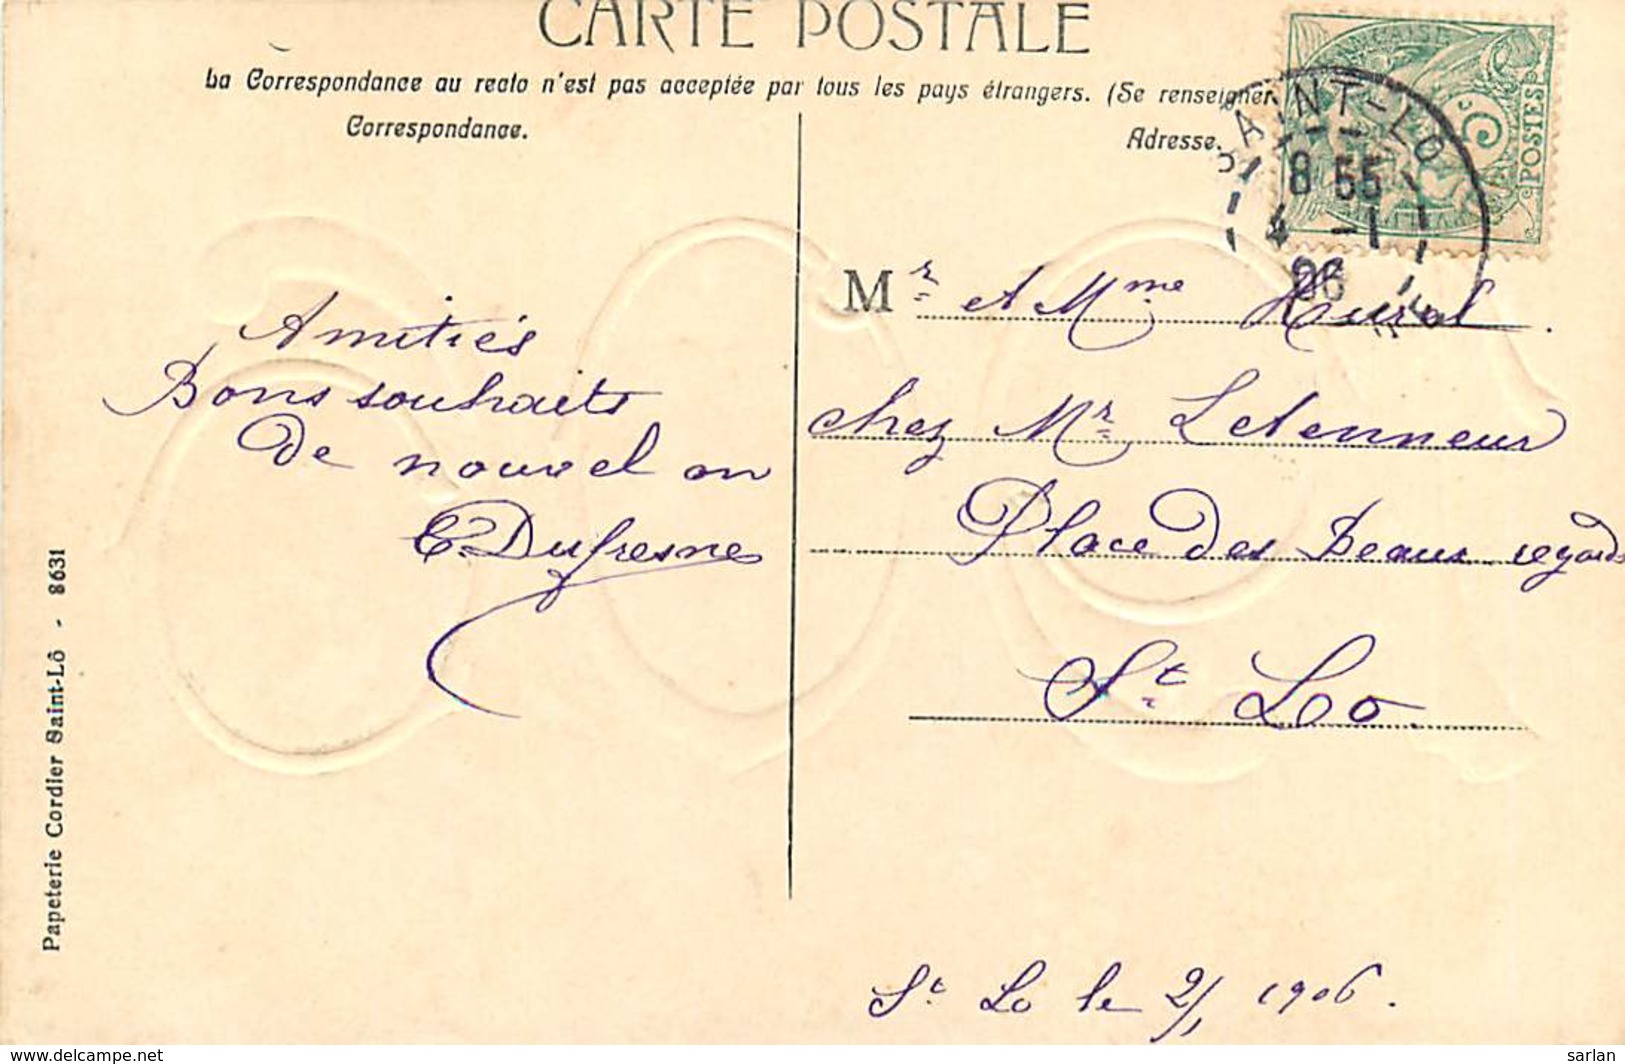 CARTE POSTALE
La Correspondance au recto n'est pas acceptée par tous les pays étrangers. (Se renseigner
Correspondance.
Adresse.
SAINT-LO
8 55
4 -1
06
POSTES
Amitiés
Bons souhaits
de nouvel an
E. Dufresne
Mr et Mme Hurel
chez Mr Letenneur
Place des Beaux regards
St Lo.
St Lo le 2/1 1906.
Papeterie Cordier Saint-Lô - 8631
www.delcampe.net
sarlan